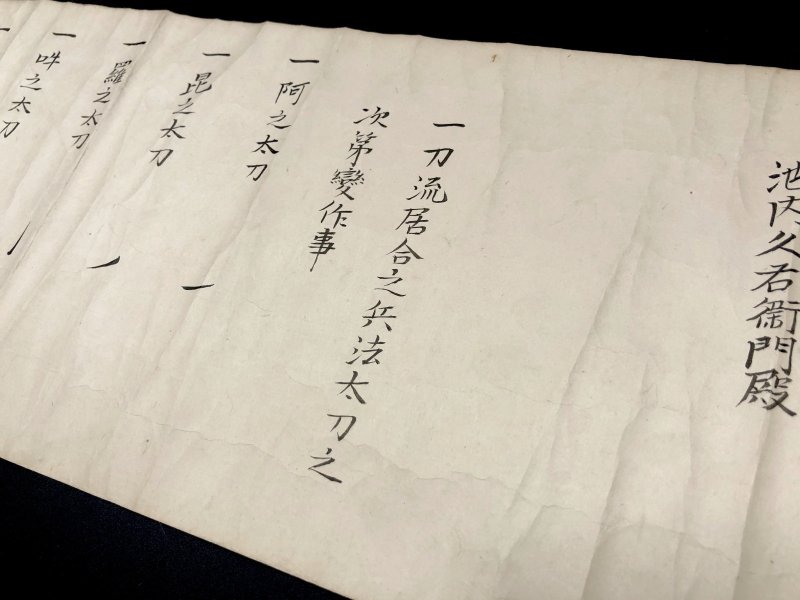 池内久右衛門殿
一刀流居合之兵法太刀之
次第變作事
一阿之太刀
一毘之太刀
一羅之太刀
一吽之太刀